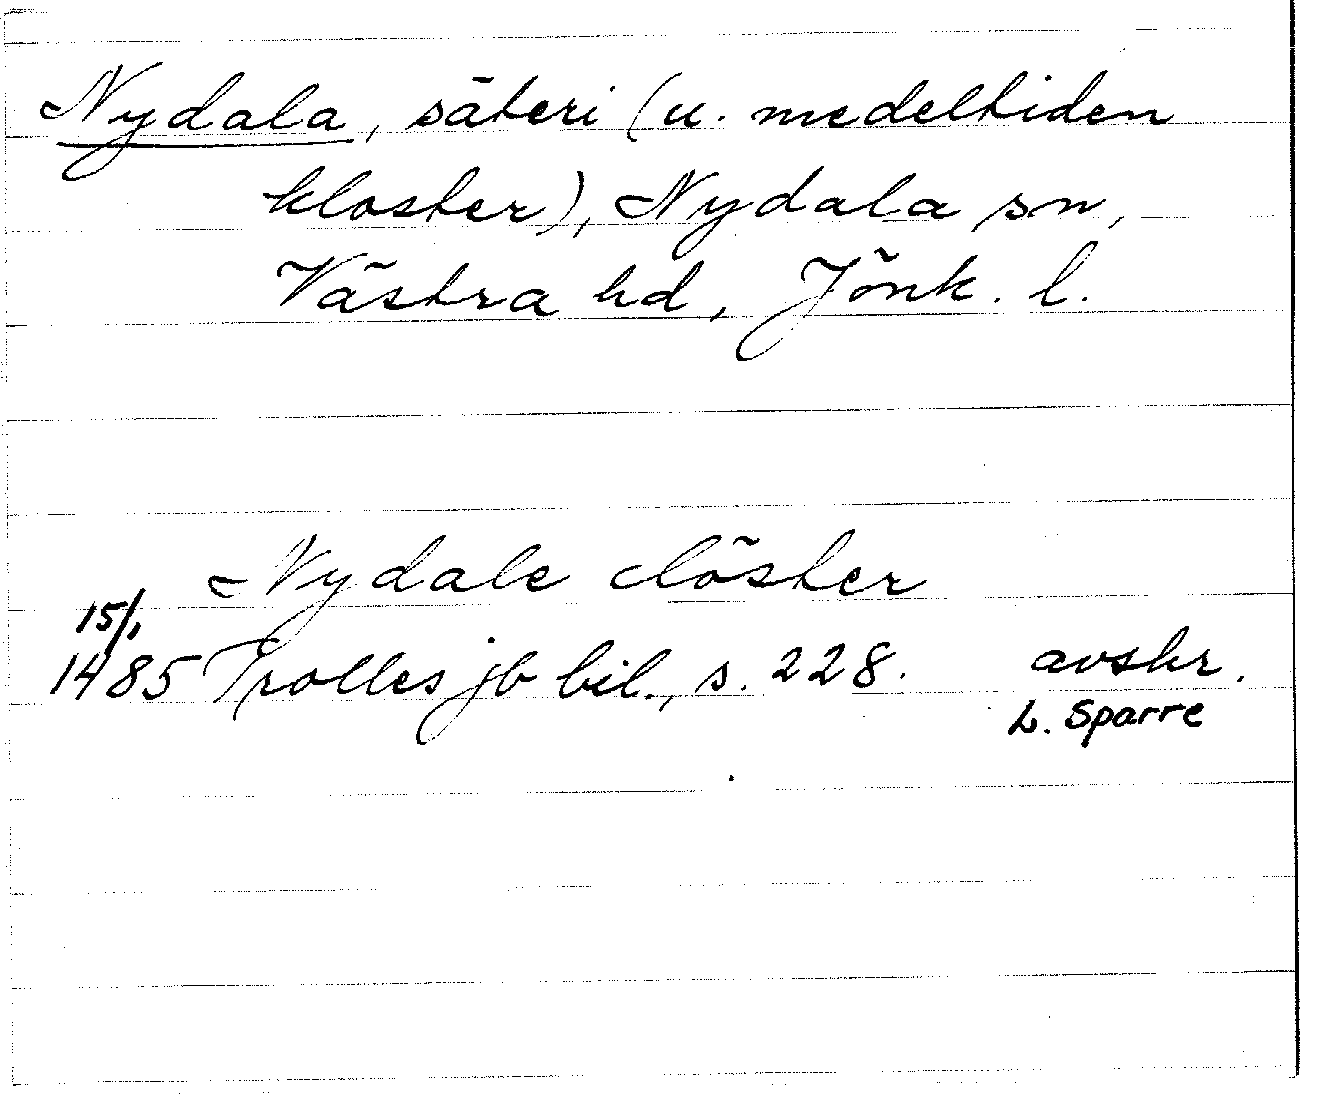 Nydala, säteri (u. medeltiden
kloster), Nydala sn,
Västra hd, Jönk. l.
Nydale clöster
15/1
1485 Trolles jb bil., s. 228. avskr.
L. Sparre